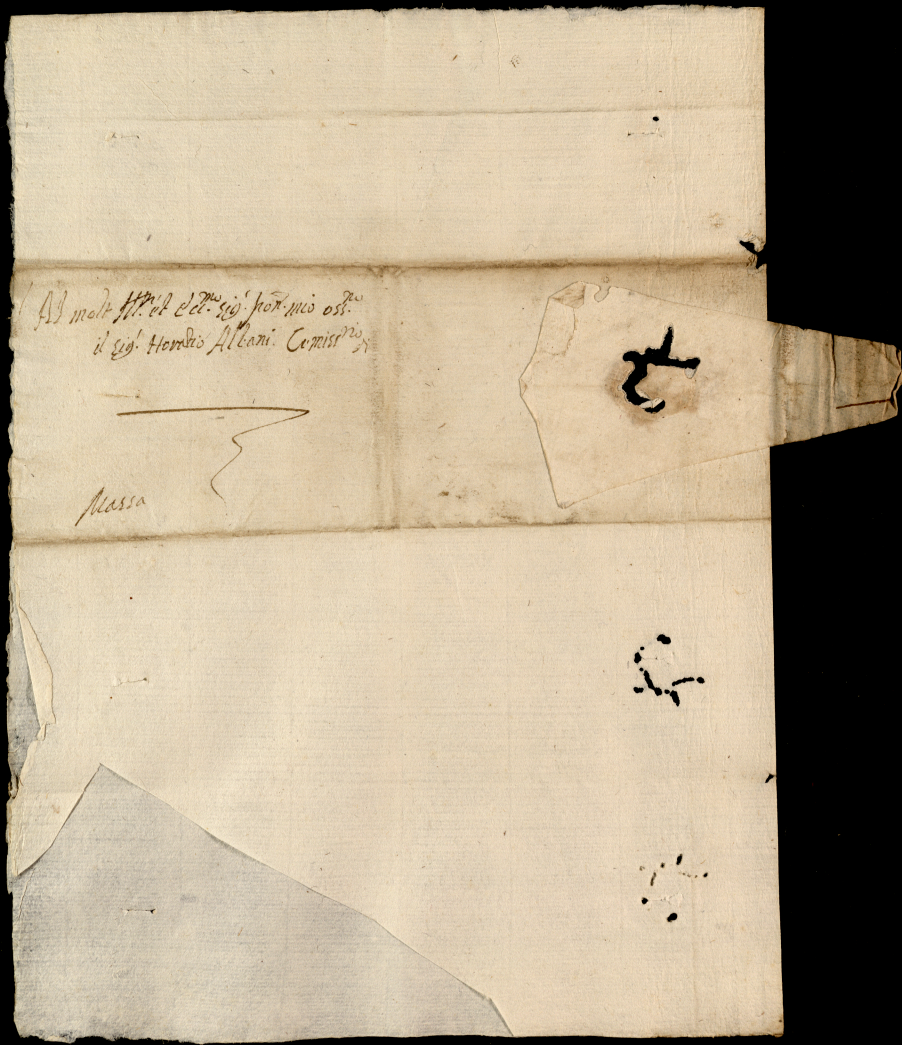 Al molt Ill.re et Ecc.mo Sig.r Pron. mio oss.mo
il Sig.r Horatio Albani. Comiss.rio
Massa